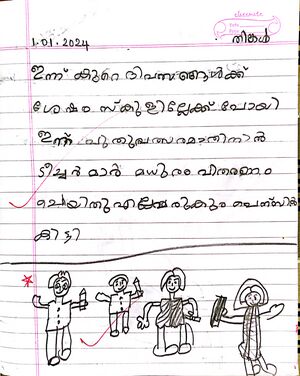 classmate
Date
Page
1.01.2024 തിങ്കൾ
ഇന്ന് കുറെ ദിവസങ്ങൾക്ക്
ശേഷം സ്കൂളിലേക്ക് പോയി
ഇന്ന് പുതുവത്സരമായതിനാൽ
ടീച്ചർ മാർ മധുരം വിതരണം
ചെയ്തു എല്ലാവർക്കും പെൻസിൽ
കിട്ടി